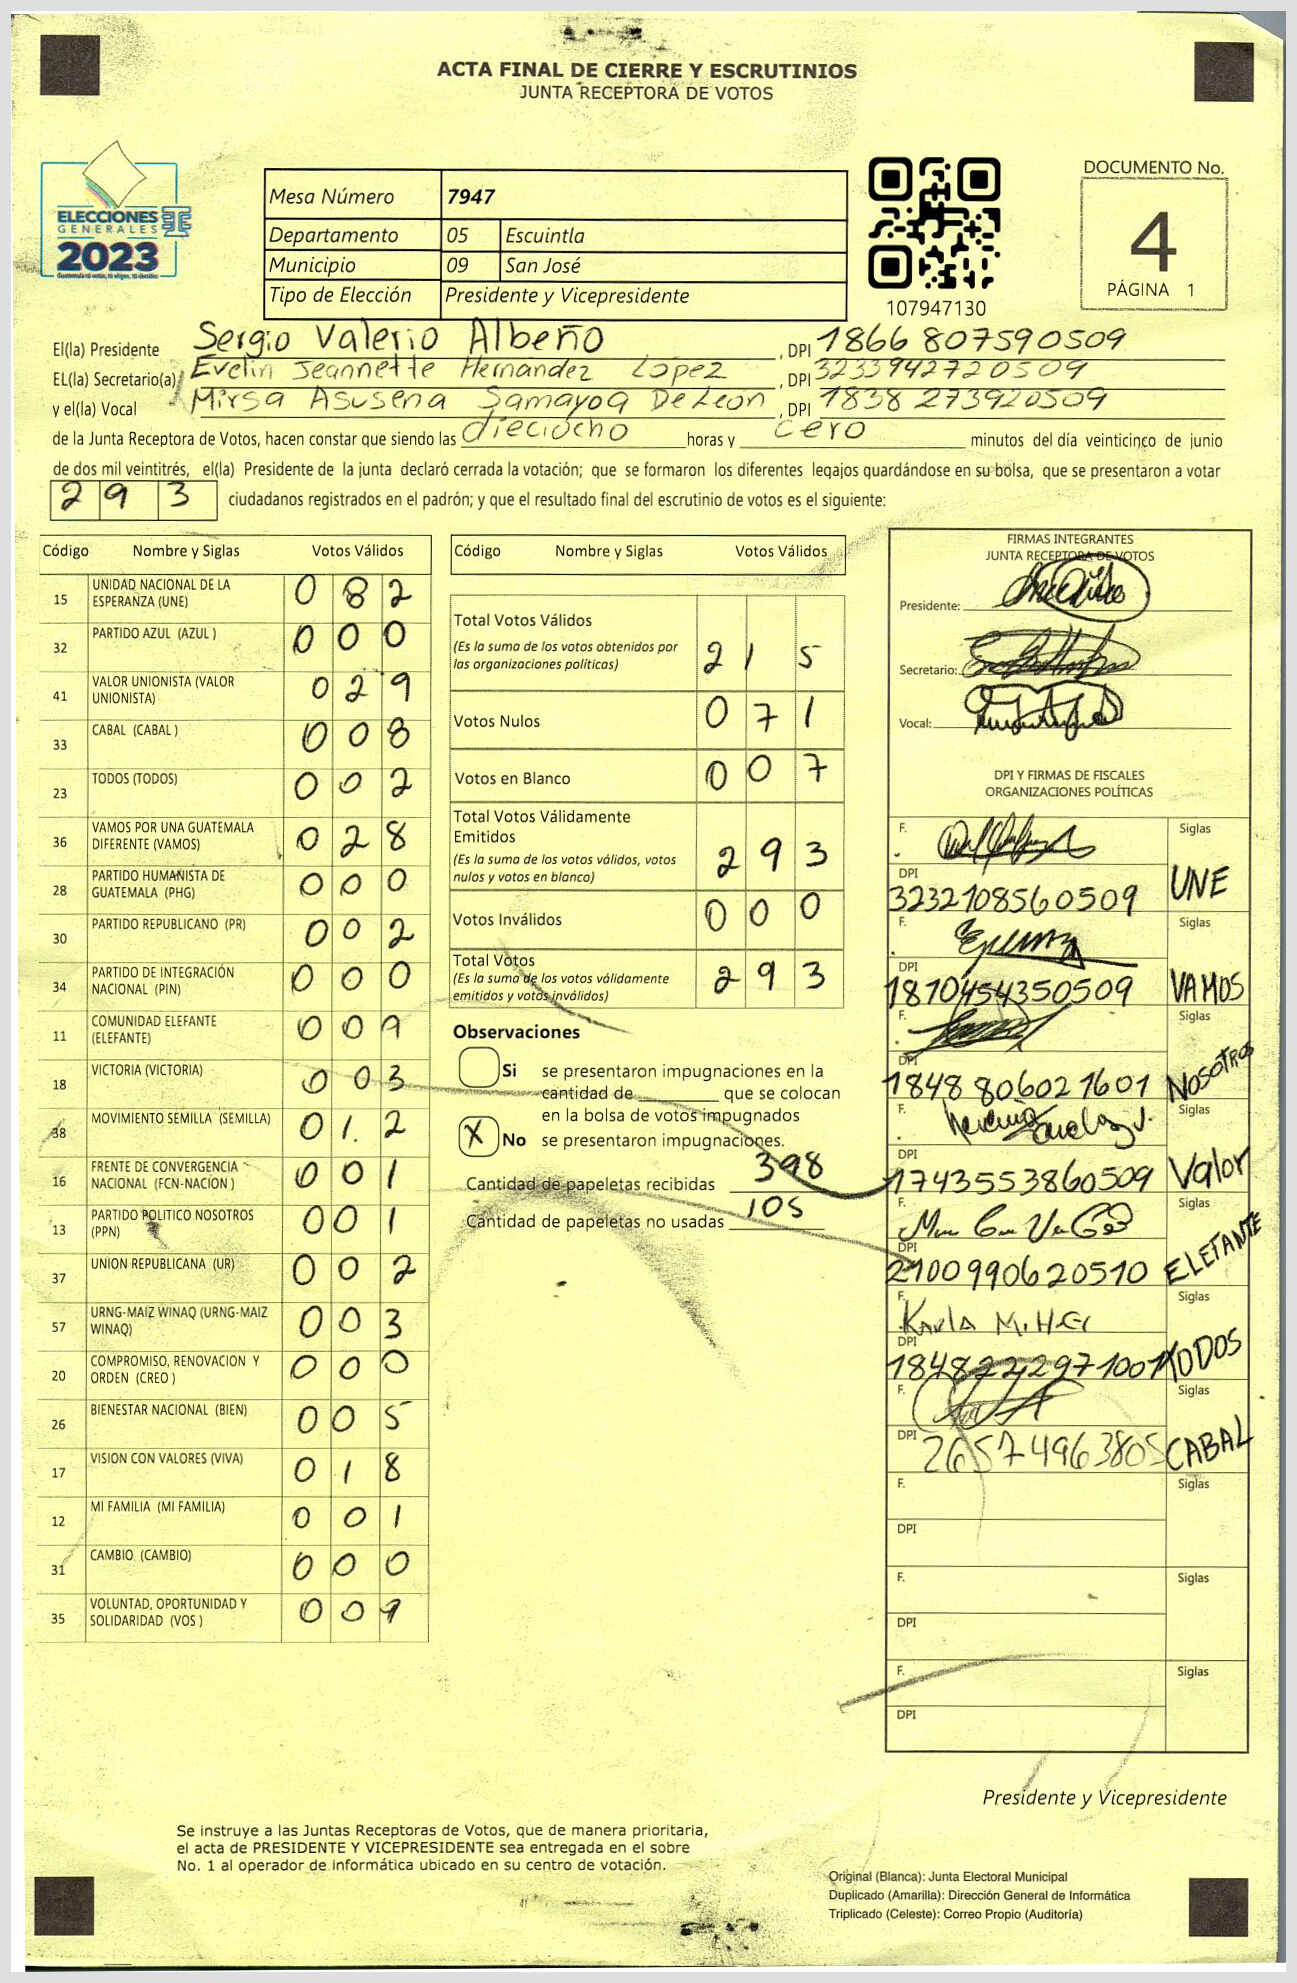 ACTA FINAL DE CIERRE Y ESCRUTINIOS
JUNTA RECEPTORA DE VOTOS
ELECCIONES
GENERALES
2023
Mesa Número 7947
Departamento 05 Escuintla
Municipio 09 San José
Tipo de Elección Presidente y Vicepresidente
107947130
DOCUMENTO No.
4
PÁGINA 1
El(la) Presidente Sergio Valerio Albeño , DPI 1866 807590509
EL(la) Secretario(a) Evelin Jeannette Hernandez Lopez , DPI 3233942720509
y el(la) Vocal Mirsa Asusena Samayoa De Leon , DPI 1838 273920509
de la Junta Receptora de Votos, hacen constar que siendo las dieciocho horas y cero minutos del día veinticinco de junio
de dos mil veintitrés, el(la) Presidente de la junta declaró cerrada la votación; que se formaron los diferentes legajos quardándose en su bolsa, que se presentaron a votar
293 ciudadanos registrados en el padrón; y que el resultado final del escrutinio de votos es el siguiente:
Código Nombre y Siglas Votos Válidos
15 UNIDAD NACIONAL DE LA ESPERANZA (UNE) 0 8 2
32 PARTIDO AZUL (AZUL ) 0 0 0
41 VALOR UNIONISTA (VALOR UNIONISTA) 0 2 9
33 CABAL (CABAL ) 0 0 8
23 TODOS (TODOS) 0 0 2
36 VAMOS POR UNA GUATEMALA DIFERENTE (VAMOS) 0 2 8
28 PARTIDO HUMANISTA DE GUATEMALA (PHG) 0 0 0
30 PARTIDO REPUBLICANO (PR) 0 0 2
34 PARTIDO DE INTEGRACIÓN NACIONAL (PIN) 0 0 0
11 COMUNIDAD ELEFANTE (ELEFANTE) 0 0 9
18 VICTORIA (VICTORIA) 0 0 3
38 MOVIMIENTO SEMILLA (SEMILLA) 0 1 2
16 FRENTE DE CONVERGENCIA NACIONAL (FCN-NACION ) 0 0 1
13 PARTIDO POLITICO NOSOTROS (PPN) 0 0 1
37 UNION REPUBLICANA (UR) 0 0 2
57 URNG-MAIZ WINAQ (URNG-MAIZ WINAQ) 0 0 3
20 COMPROMISO, RENOVACION Y ORDEN (CREO ) 0 0 0
26 BIENESTAR NACIONAL (BIEN) 0 0 5
17 VISION CON VALORES (VIVA) 0 1 8
12 MI FAMILIA (MI FAMILIA) 0 0 1
31 CAMBIO (CAMBIO) 0 0 0
35 VOLUNTAD, OPORTUNIDAD Y SOLIDARIDAD (VOS ) 0 0 9
Código Nombre y Siglas Votos Válidos
Total Votos Válidos 2 1 5
(Es la suma de los votos obtenidos por
las organizaciones políticas)
Votos Nulos 0 7 1
Votos en Blanco 0 0 7
Total Votos Válidamente
Emitidos 2 9 3
(Es la suma de los votos válidos, votos
nulos y votos en blanco)
Votos Inválidos 0 0 0
Total Votos 2 9 3
(Es la suma de los votos válidamente
emitidos y votos inválidos)
Observaciones
Si se presentaron impugnaciones en la
cantidad de que se colocan
en la bolsa de votos impugnados
X No se presentaron impugnaciones.
Cantidad de papeletas recibidas 398
Cantidad de papeletas no usadas 105
FIRMAS INTEGRANTES
JUNTA RECEPTORA DE VOTOS
Presidente:
Secretario:
Vocal:
DPI Y FIRMAS DE FISCALES
ORGANIZACIONES POLÍTICAS
F. Siglas
DPI 3232108560509 UNE
F. Siglas
DPI 1870454350509 VAMOS
F. Siglas
DPI 1848 806021601 NOSOTROS
F. Siglas
DPI 1743553860509 Valor
F. Siglas
DPI 2100990620510 ELEFANTE
F. Karla Siglas
DPI TODOS
F. Siglas
DPI 2657496 3805 CABAL
F. Siglas
DPI
F. Siglas
DPI
F. Siglas
DPI
Presidente y Vicepresidente
Se instruye a las Juntas Receptoras de Votos, que de manera prioritaria,
el acta de PRESIDENTE Y VICEPRESIDENTE sea entregada en el sobre
No. 1 al operador de informática ubicado en su centro de votación.
Original (Blanca): Junta Electoral Municipal
Duplicado (Amarilla): Dirección General de Informática
Triplicado (Celeste): Correo Propio (Auditoría)